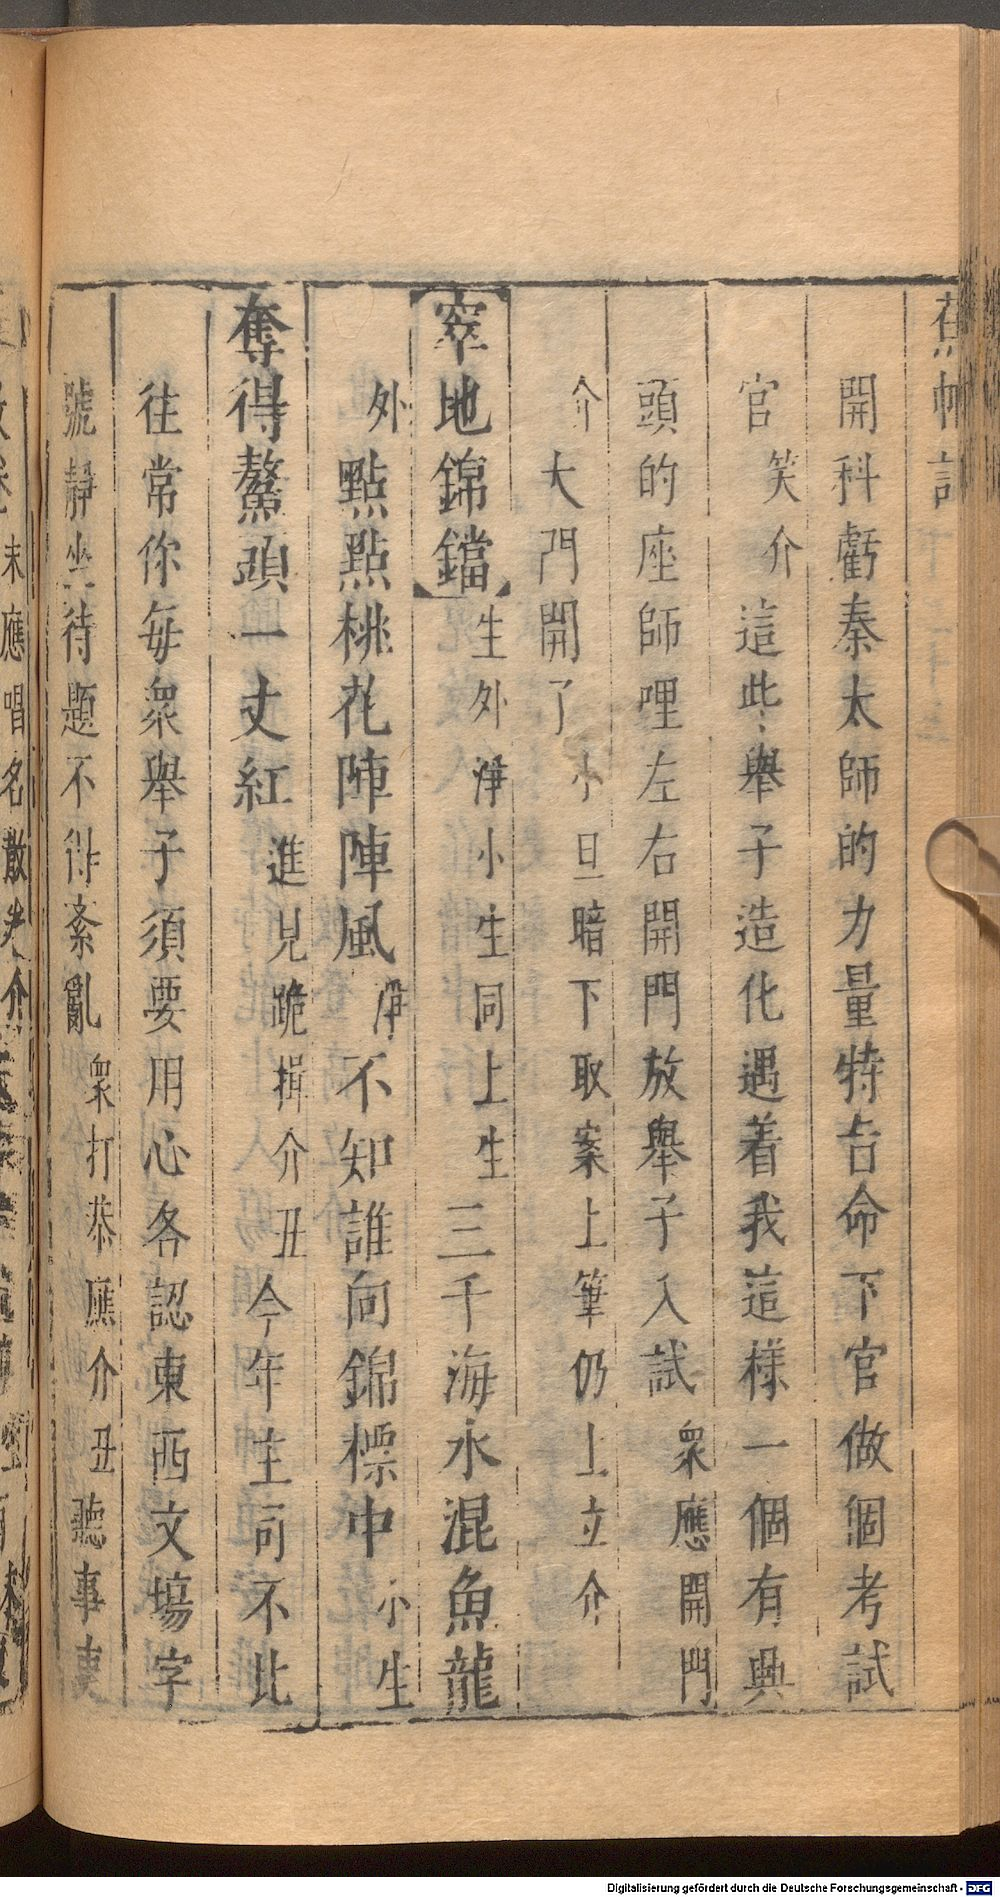 蕉帕記
開科虧秦太師的力量特占命下官做個考試
官笑介這些舉子造化遇着我這樣一個有興
頭的座師哩左右開門放舉子入試衆應開門
介大門開了小旦暗下取案上筆仍上立介
【窣地錦鐺】生外淨小生同上生三千海水混魚龍
外點點桃花陣陣風淨不知誰向錦標中小生
奪得鰲頭一丈紅進見跪揖介丑今年主司不比
往常你每衆舉子須要用心各認東西文塲字
號靜坐待題不得紊亂衆打恭應介丑聽事吏
末應唱名散卷介
Digitalisierung gefördert durch die Deutsche Forschungsgemeinschaft - DFG